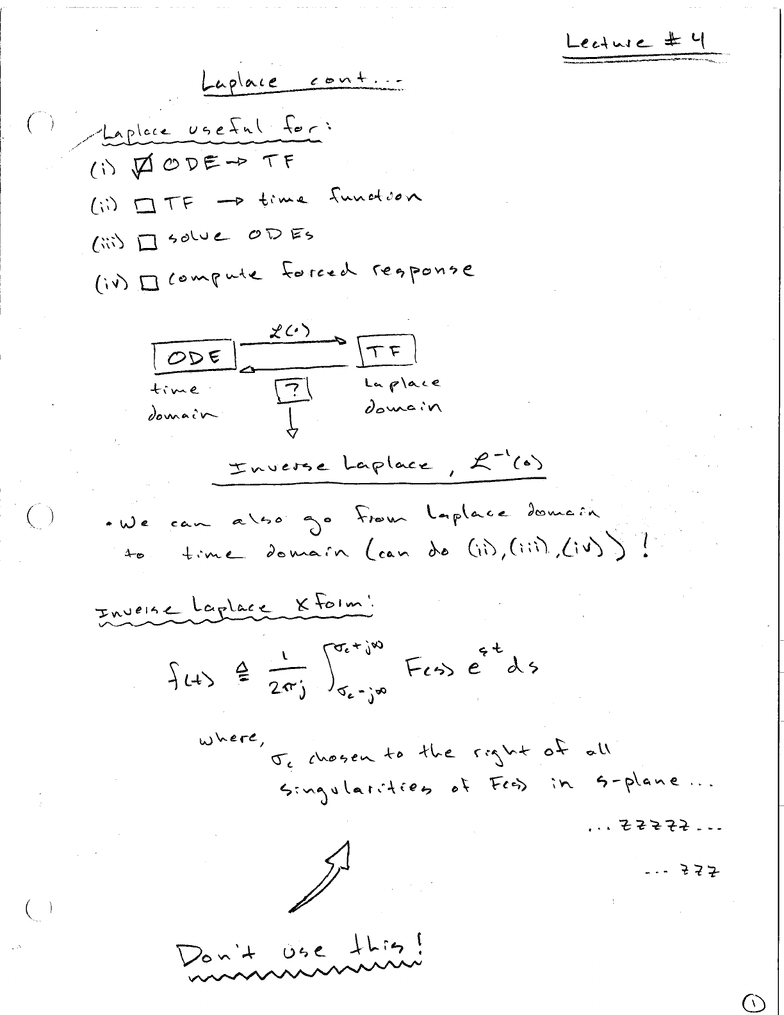 Lecture # 4
Laplace cont...
Laplace useful for:
(i) ☑ ODE → TF
(ii) □ TF → time function
(iii) □ solve ODEs
(iv) □ compute forced response
ℒ(·)
ODE TF
time domain ? Laplace domain
Inverse Laplace, ℒ⁻¹(·)
• We can also go from Laplace domain
to time domain (can do (ii), (iii), (iv)) !
Inverse Laplace Xform:
f(t) ≜ 1/2πj ∫_{σc-j∞}^{σc+j∞} F(s) e^{st} ds
where,
σc chosen to the right of all
singularities of F(s) in s-plane...
... zzzzz ...
... zzz
Don't use this!
1